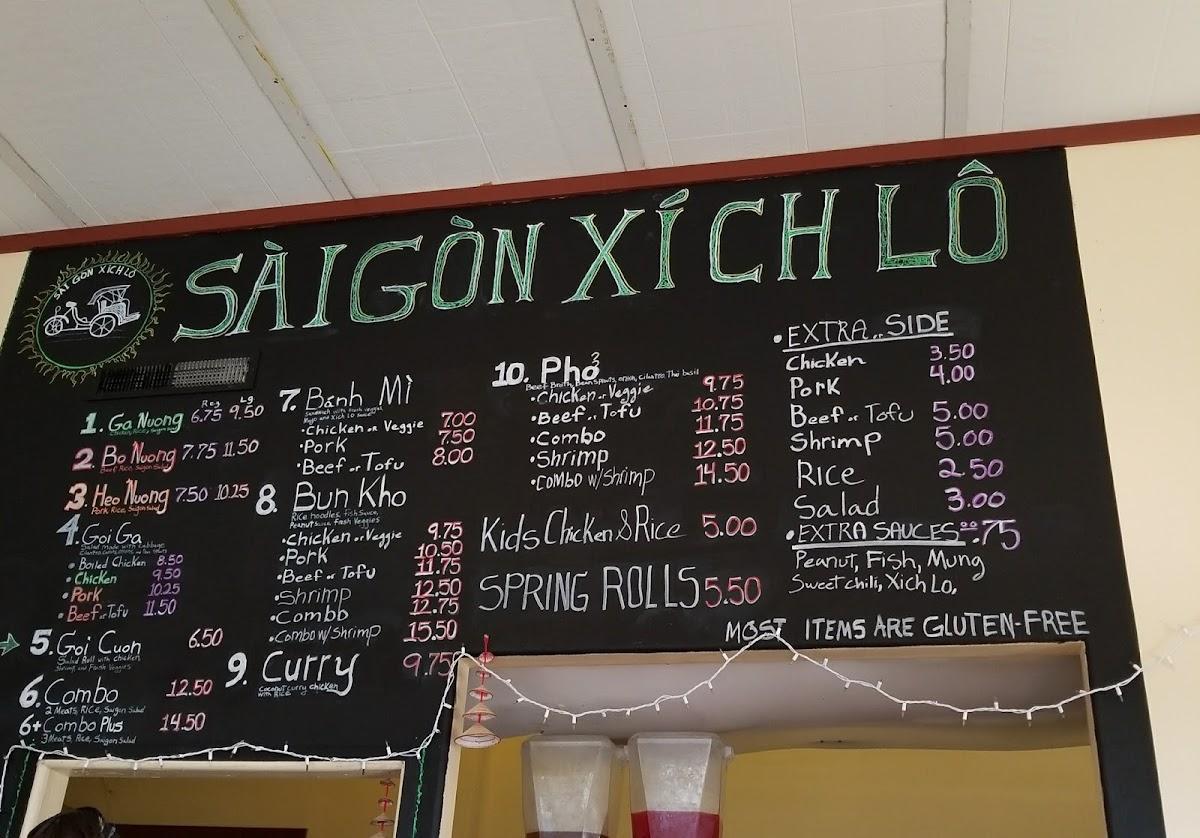 SÀIGÒN XÍCH LÔ
SÀI GÒN XÍCH LÔ
Reg Lg
1. Ga Nuong 6.75 9.50
2. Bo Nuong 7.75 11.50
Beef, Rice, Saigon Salad
3. Heo Nuong 7.50 10.25
Pork, Rice, Saigon Salad
4. Goi Ga
Salad Made with Cabbage
• Boiled Chicken 8.50
• Chicken 9.50
• Pork 10.25
• Beef or Tofu 11.50
5. Goi Cuon 6.50
Salad Roll with chicken
Shrimp, and Fresh Veggies
6. Combo 12.50
2 Meats, Rice, Saigon Salad
6+ Combo Plus 14.50
3 Meats, Rice, Saigon Salad
7. Bánh Mì
Sandwich with fresh veggies
Mayo and Xich Lo Sauce
• Chicken or Veggie 7.00
• Pork 7.50
• Beef or Tofu 8.00
8. Bun Kho
Rice noodles, fish sauce,
Peanut sauce, Fresh Veggies
• Chicken or Veggie 9.75
• Pork 10.50
• Beef or Tofu 11.75
• Shrimp 12.50
• Combo 12.75
• Combo w/ Shrimp 15.50
9. Curry 9.75
Coconut curry chicken
with Rice
10. Phở
Beef Broth, Bean Sprouts, onion, Cilantro, Thai basil
• Chicken or Veggie 9.75
• Beef or Tofu 10.75
• Combo 11.75
• Shrimp 12.50
• Combo w/ Shrimp 14.50
Kids Chicken & Rice 5.00
SPRING ROLLS 5.50
• EXTRA .. SIDE
Chicken 3.50
Pork 4.00
Beef or Tofu 5.00
Shrimp 5.00
Rice 2.50
Salad 3.00
• EXTRA SAUCES .75
Peanut, Fish, Mung
Sweet chili, Xich Lo,
MOST ITEMS ARE GLUTEN-FREE